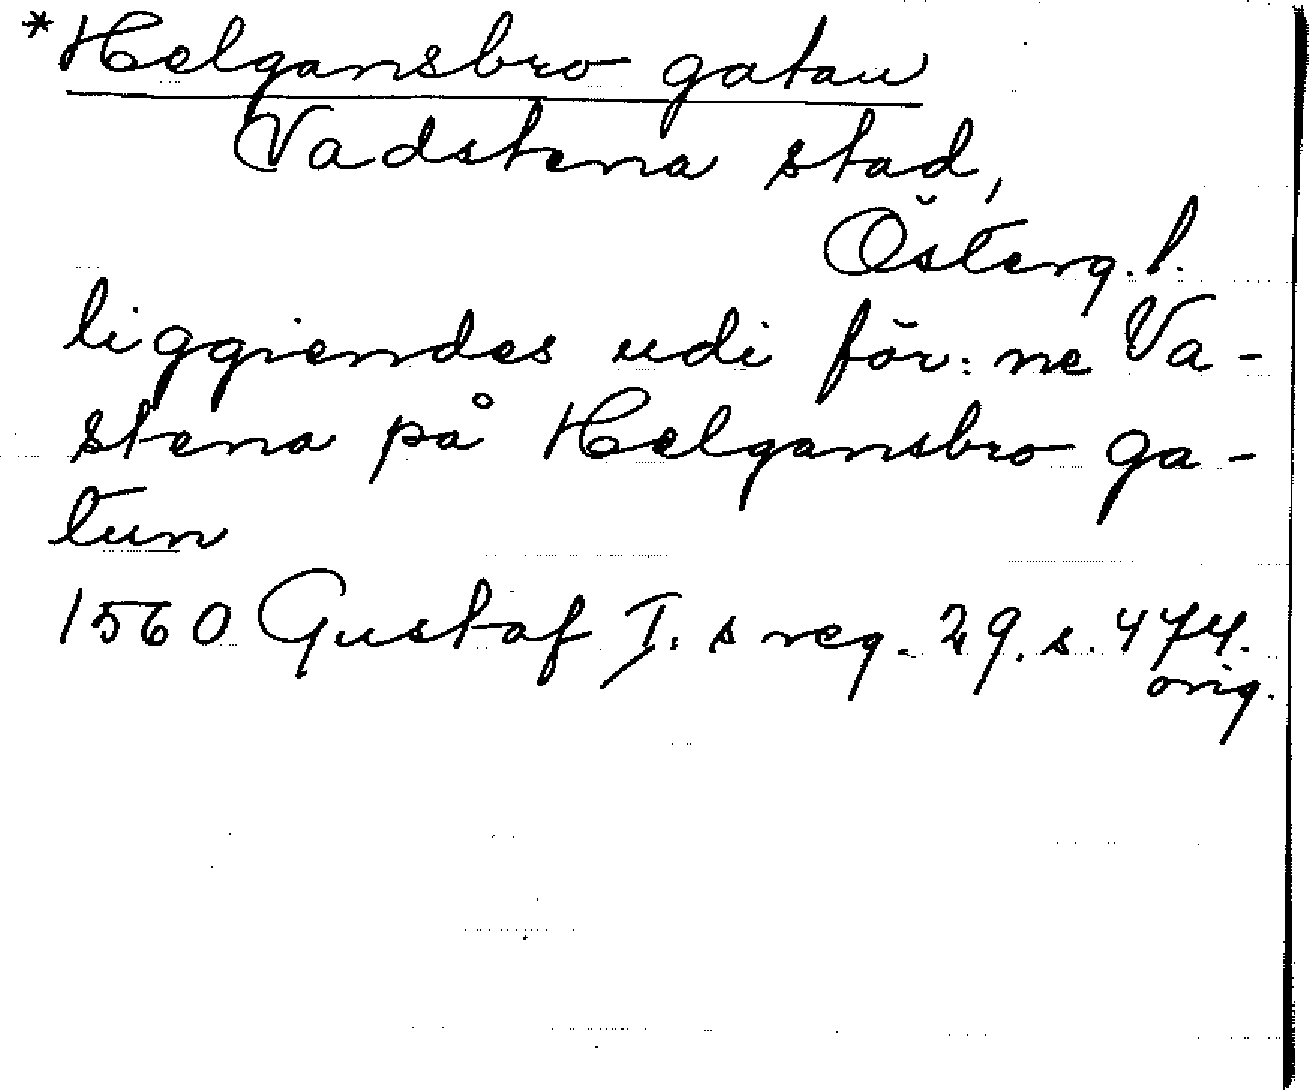 *Helgansbro gatan
Vadstena stad,
Österg. l.
liggiendes udi för: ne Va-
stena på Helgansbro ga-
tun
1560 Gustaf I. s reg. 29. s. 474.
orig.